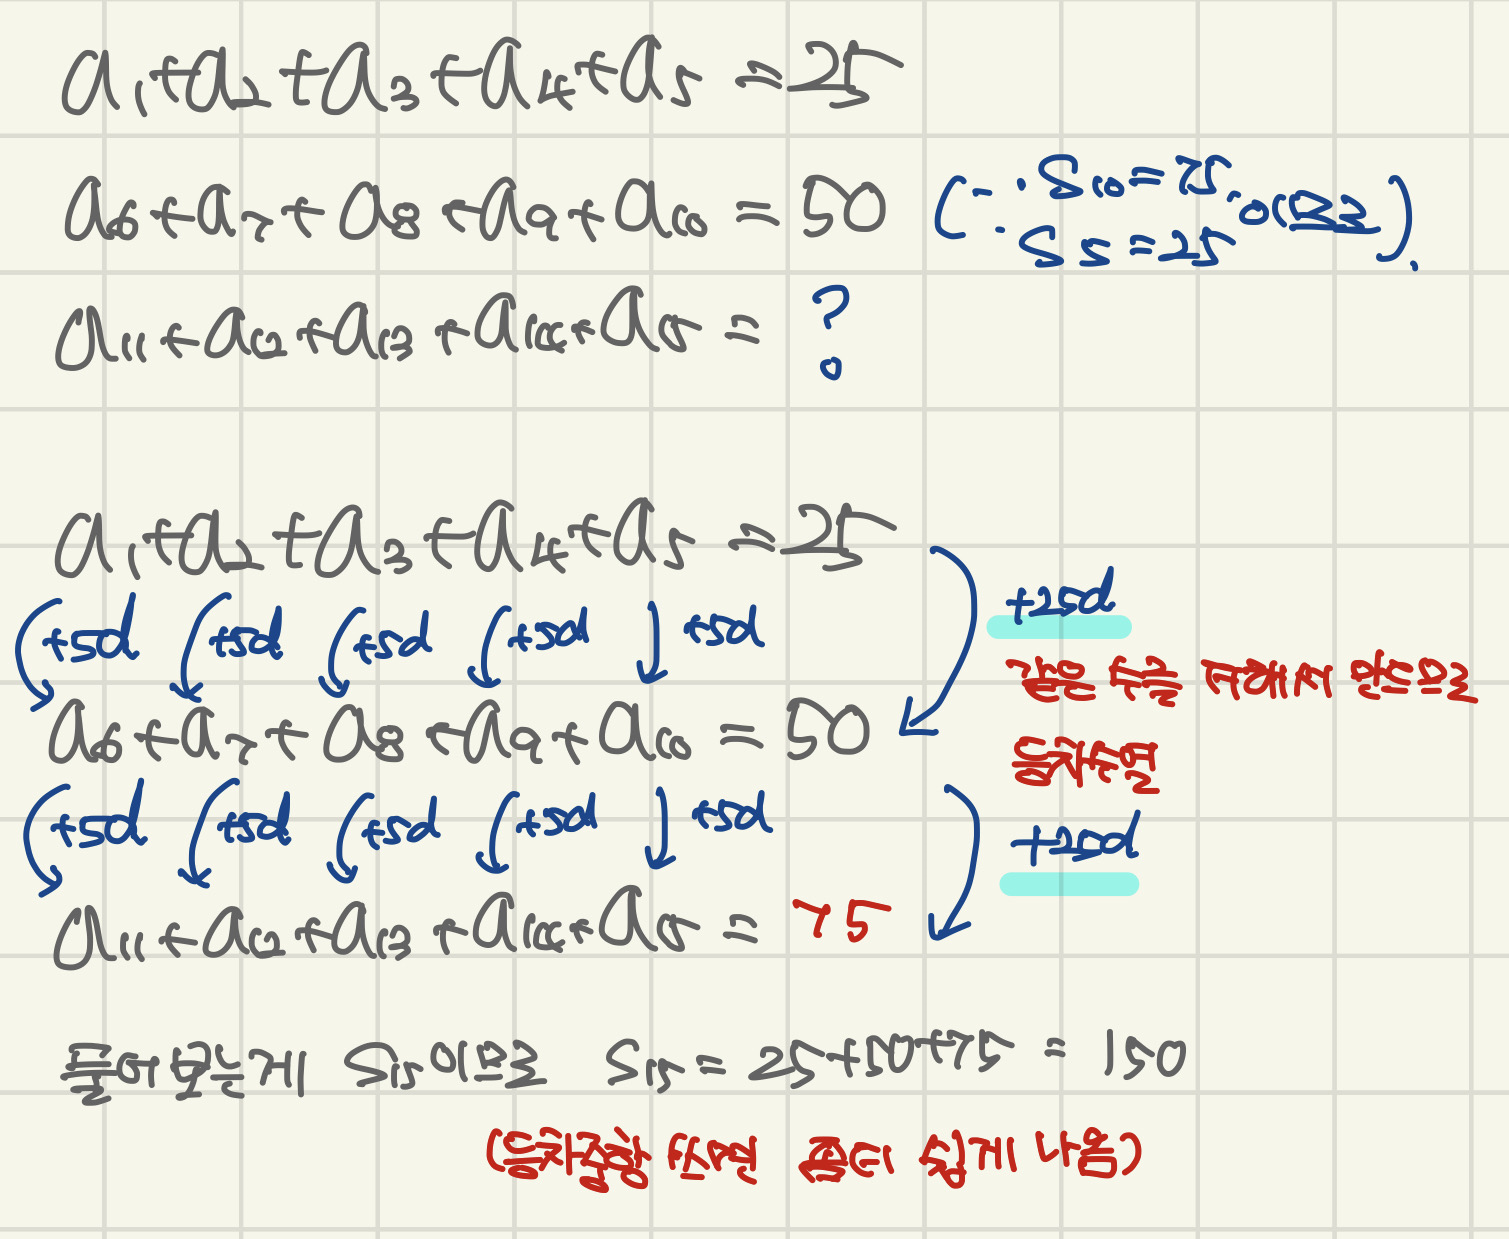 a₁+a₂+a₃+a₄+a₅ =25
a₆+a₇+a₈+a₉+a₁₀ =50 (∵ S₁₀=75, S₅=25 이므로).
a₁₁+a₁₂+a₁₃+a₁₄+a₁₅ = ?
a₁+a₂+a₃+a₄+a₅ =25
+5d +5d +5d +5d +5d +25d
같은 수를 계속
a₆+a₇+a₈+a₉+a₁₀ =50
등차수열
+5d +5d +5d +5d +5d +25d
a₁₁+a₁₂+a₁₃+a₁₄+a₁₅ = 75
묻는게 S₁₅이므로 S₁₅ = 25+50+75 = 150
(등차중항 쓰면 쉽게 나옴)